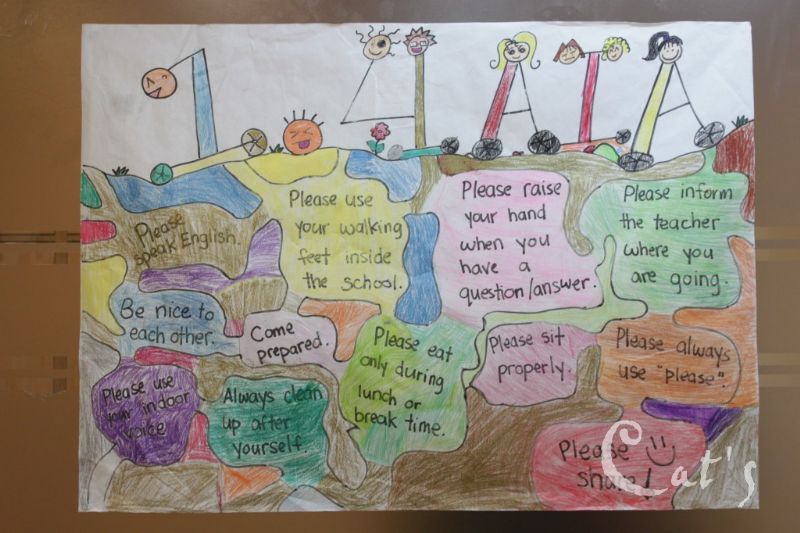 Please
speak English.
Please use
your walking
feet inside
the school.
Please raise
your hand
when you
have a
question/answer.
Please inform
the teacher
where you
are going.
Be nice to
each other.
Come
prepared.
Please eat
only during
lunch or
break time.
Please sit
properly.
Please always
use "please".
Please use
your indoor
voice
Always clean
up after
yourself.
Please
share!
Cat's